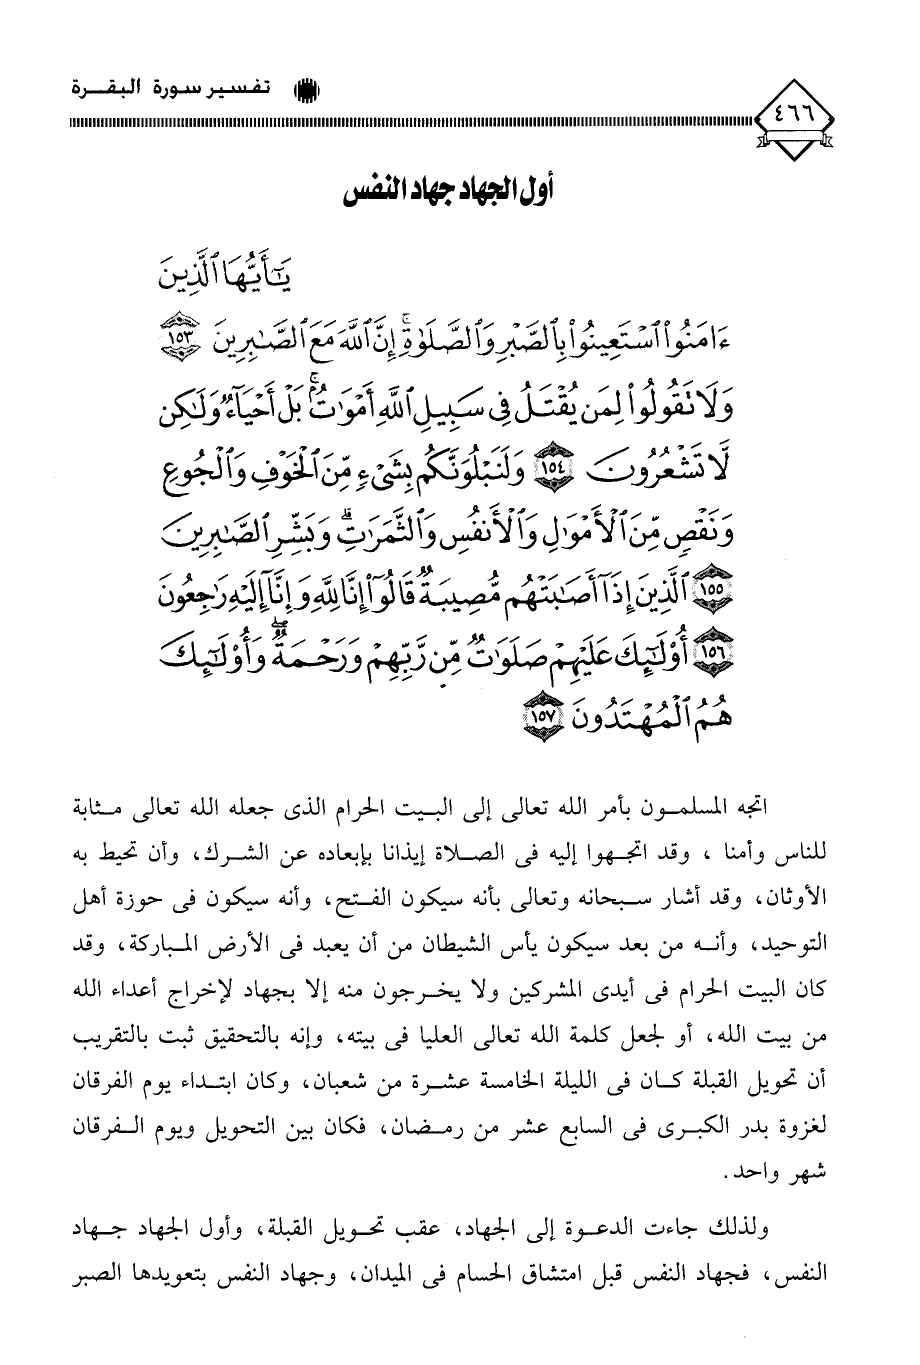 تفسير سورة البقرة
٤٦٦
أول الجهاد جهاد النفس
يَٰٓأَيُّهَا ٱلَّذِينَ
ءَامَنُوا۟ ٱسْتَعِينُوا۟ بِٱلصَّبْرِ وَٱلصَّلَوٰةِ ۚ إِنَّ ٱللَّهَ مَعَ ٱلصَّٰبِرِينَ ١٥٣
وَلَا تَقُولُوا۟ لِمَن يُقْتَلُ فِى سَبِيلِ ٱللَّهِ أَمْوَٰتٌۢ ۚ بَلْ أَحْيَآءٌ وَلَٰكِن
لَّا تَشْعُرُونَ ١٥٤ وَلَنَبْلُوَنَّكُم بِشَىْءٍ مِّنَ ٱلْخَوْفِ وَٱلْجُوعِ
وَنَقْصٍ مِّنَ ٱلْأَمْوَٰلِ وَٱلْأَنفُسِ وَٱلثَّمَرَٰتِ ۗ وَبَشِّرِ ٱلصَّٰبِرِينَ
١٥٥ ٱلَّذِينَ إِذَآ أَصَٰبَتْهُم مُّصِيبَةٌ قَالُوٓا۟ إِنَّا لِلَّهِ وَإِنَّآ إِلَيْهِ رَٰجِعُونَ
١٥٦ أُو۟لَٰٓئِكَ عَلَيْهِمْ صَلَوَٰتٌ مِّن رَّبِّهِمْ وَرَحْمَةٌ ۖ وَأُو۟لَٰٓئِكَ
هُمُ ٱلْمُهْتَدُونَ ١٥٧
اتجه المسلمون بأمر الله تعالى إلى البيت الحرام الذى جعله الله تعالى مثابة
للناس وأمنا ، وقد اتجهوا إليه فى الصلاة إيذانا بإبعاده عن الشرك، وأن تحيط به
الأوثان، وقد أشار سبحانه وتعالى بأنه سيكون الفتح، وأنه سيكون فى حوزة أهل
التوحيد، وأنه من بعد سيكون يأس الشيطان من أن يعبد فى الأرض المباركة، وقد
كان البيت الحرام فى أيدى المشركين ولا يخرجون منه إلا بجهاد لإخراج أعداء الله
من بيت الله، أو لجعل كلمة الله تعالى العليا فى بيته، وإنه بالتحقيق ثبت بالتقريب
أن تحويل القبلة كان فى الليلة الخامسة عشرة من شعبان، وكان ابتداء يوم الفرقان
لغزوة بدر الكبرى فى السابع عشر من رمضان، فكان بين التحويل ويوم الفرقان
شهر واحد.
ولذلك جاءت الدعوة إلى الجهاد، عقب تحويل القبلة، وأول الجهاد جهاد
النفس، فجهاد النفس قبل امتشاق الحسام فى الميدان، وجهاد النفس بتعويدها الصبر